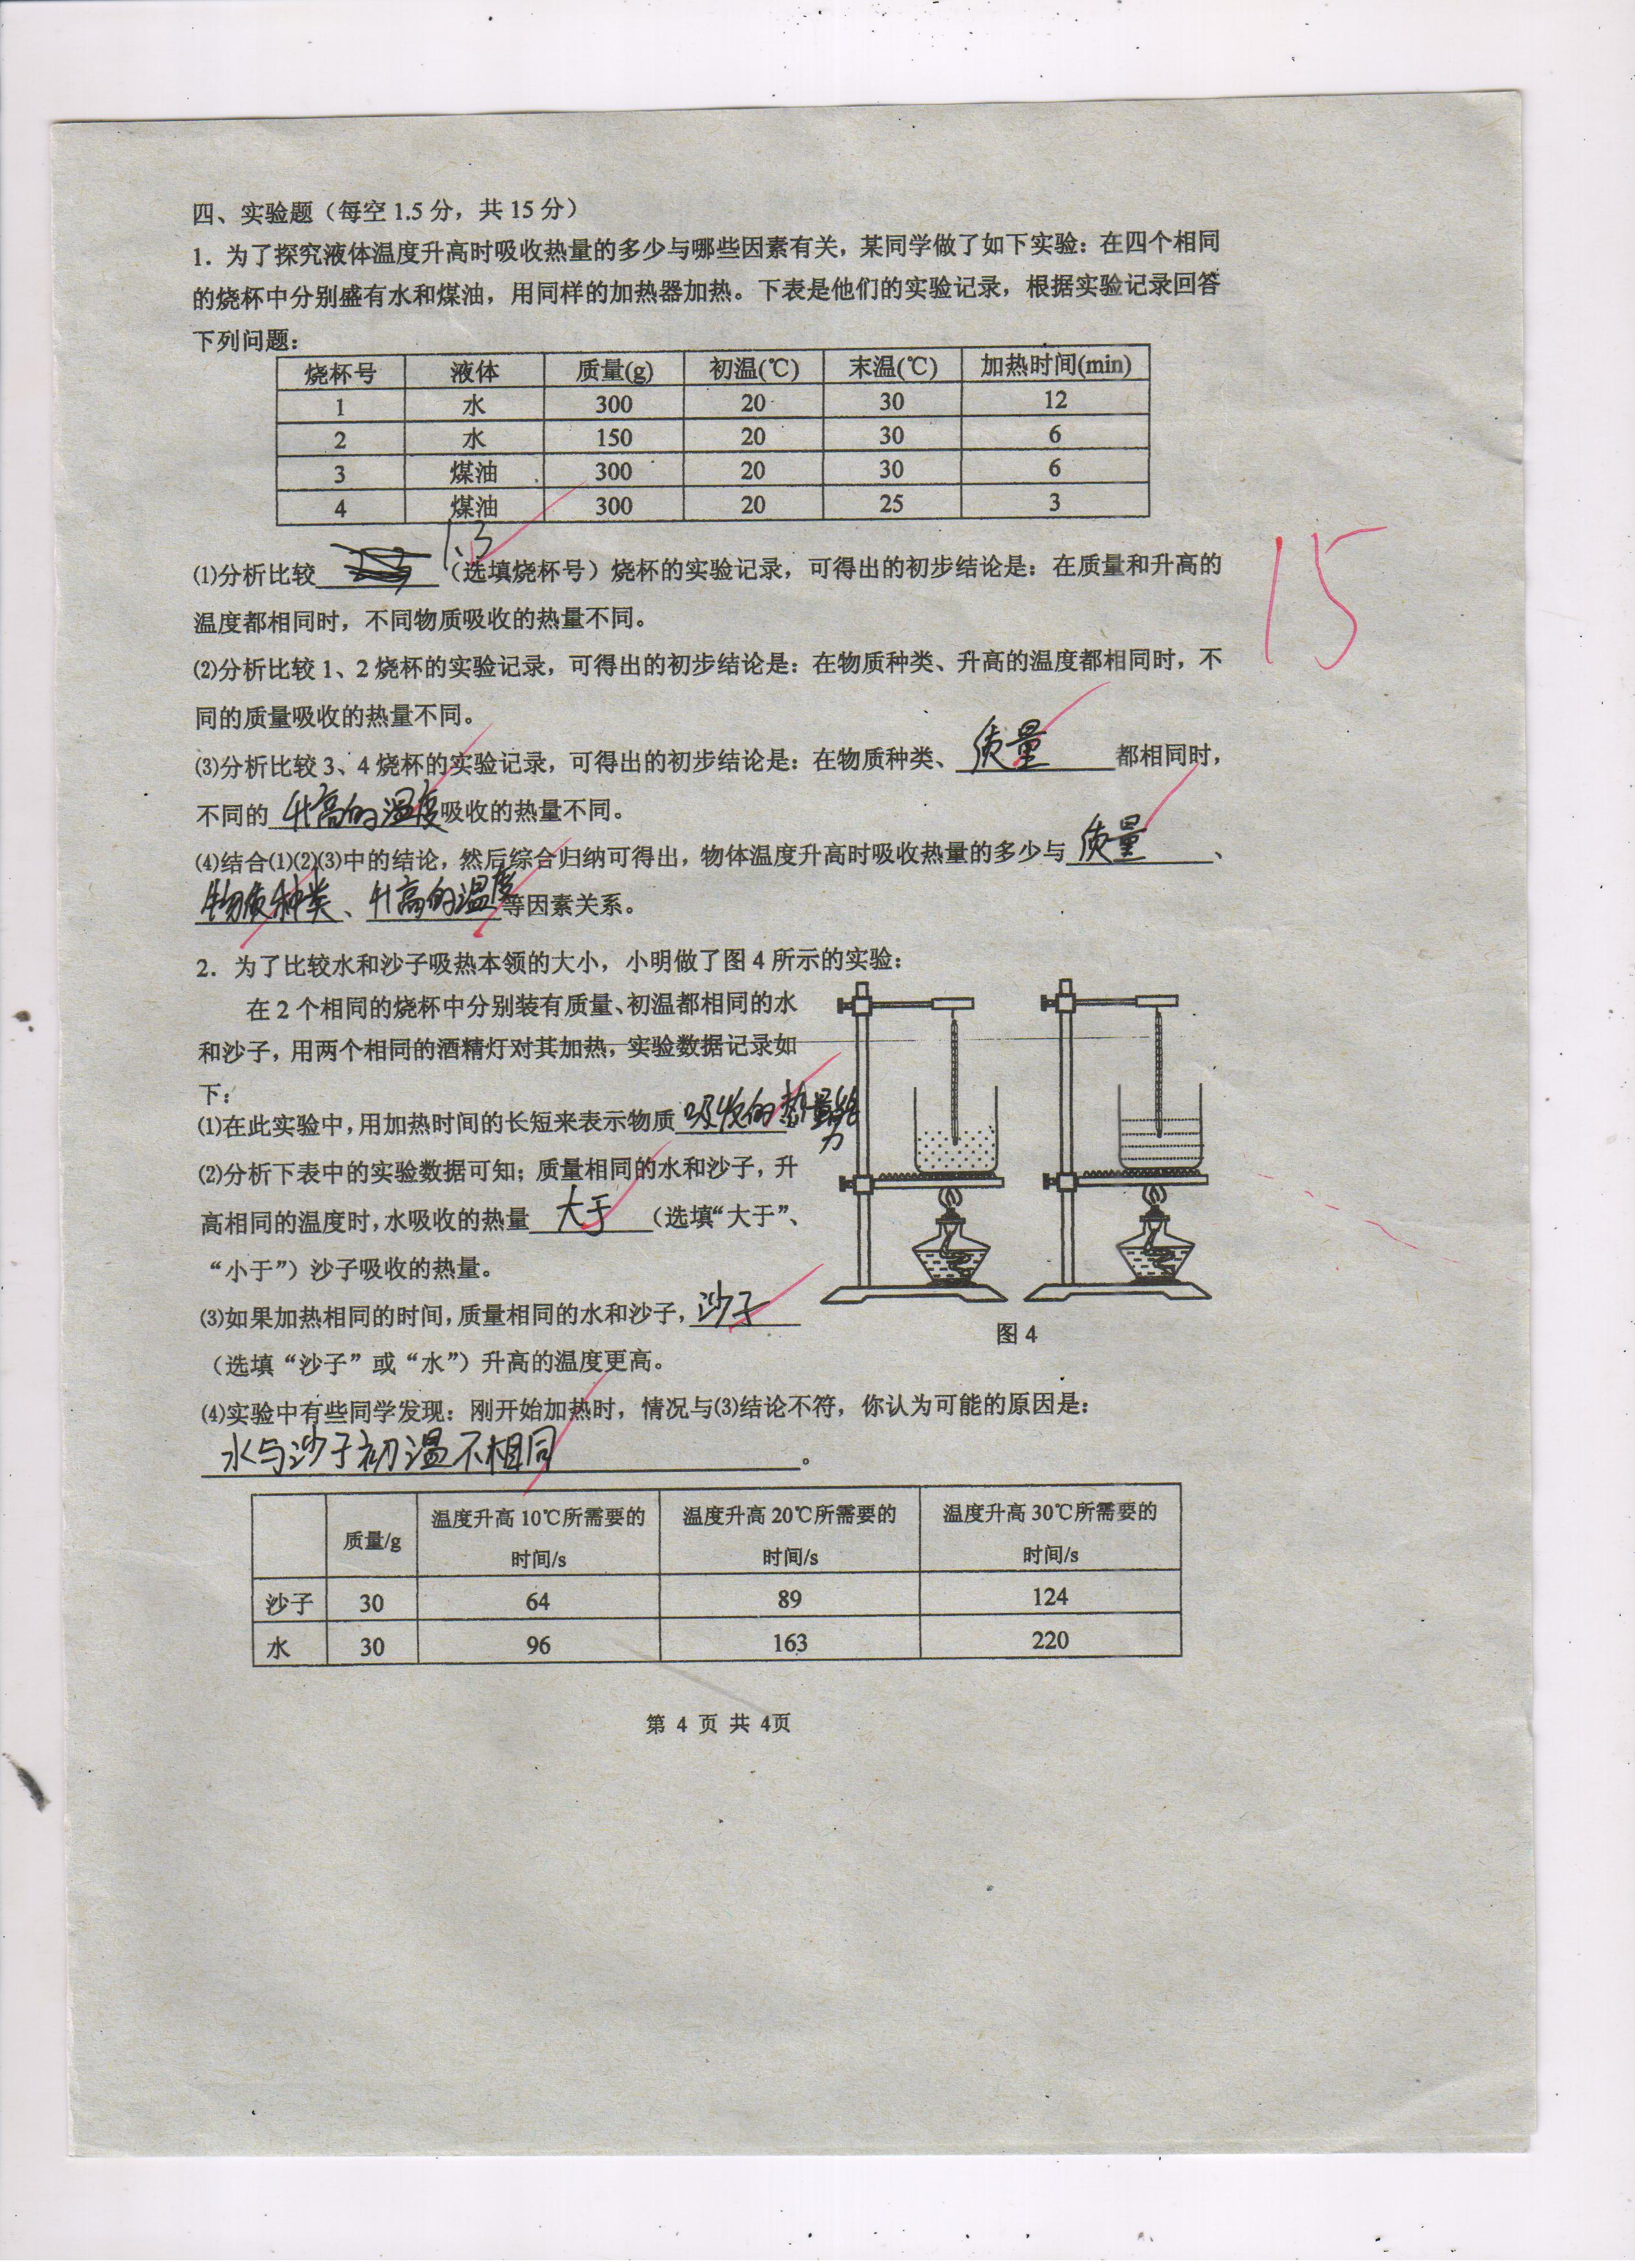 四、实验题（每空1.5分，共15分）
1．为了探究液体温度升高时吸收热量的多少与哪些因素有关，某同学做了如下实验：在四个相同
的烧杯中分别盛有水和煤油，用同样的加热器加热。下表是他们的实验记录，根据实验记录回答
下列问题：
烧杯号 液体 质量(g) 初温(℃) 末温(℃) 加热时间(min)
1 水 300 20 30 12
2 水 150 20 30 6
3 煤油 300 20 30 6
4 煤油 300 20 25 3
1.3
⑴分析比较（选填烧杯号）烧杯的实验记录，可得出的初步结论是：在质量和升高的
15
温度都相同时，不同物质吸收的热量不同。
⑵分析比较1、2烧杯的实验记录，可得出的初步结论是：在物质种类、升高的温度都相同时，不
同的质量吸收的热量不同。
⑶分析比较3、4烧杯的实验记录，可得出的初步结论是：在物质种类、质量都相同时，
不同的升高的温度吸收的热量不同。
⑷结合⑴⑵⑶中的结论，然后综合归纳可得出，物体温度升高时吸收热量的多少与质量、
物质种类、升高的温度等因素关系。
2．为了比较水和沙子吸热本领的大小，小明做了图4所示的实验：
在2个相同的烧杯中分别装有质量、初温都相同的水
和沙子，用两个相同的酒精灯对其加热，实验数据记录如
下：
⑴在此实验中，用加热时间的长短来表示物质吸收的热量能力
⑵分析下表中的实验数据可知；质量相同的水和沙子，升
高相同的温度时，水吸收的热量大于（选填“大于”、
“小于”）沙子吸收的热量。
⑶如果加热相同的时间，质量相同的水和沙子，沙子
图4
（选填“沙子”或“水”）升高的温度更高。
⑷实验中有些同学发现：刚开始加热时，情况与⑶结论不符，你认为可能的原因是：
水与沙子初温不相同。
质量/g 温度升高10℃所需要的时间/s 温度升高20℃所需要的时间/s 温度升高30℃所需要的时间/s
沙子 30 64 89 124
水 30 96 163 220
第 4 页 共 4页